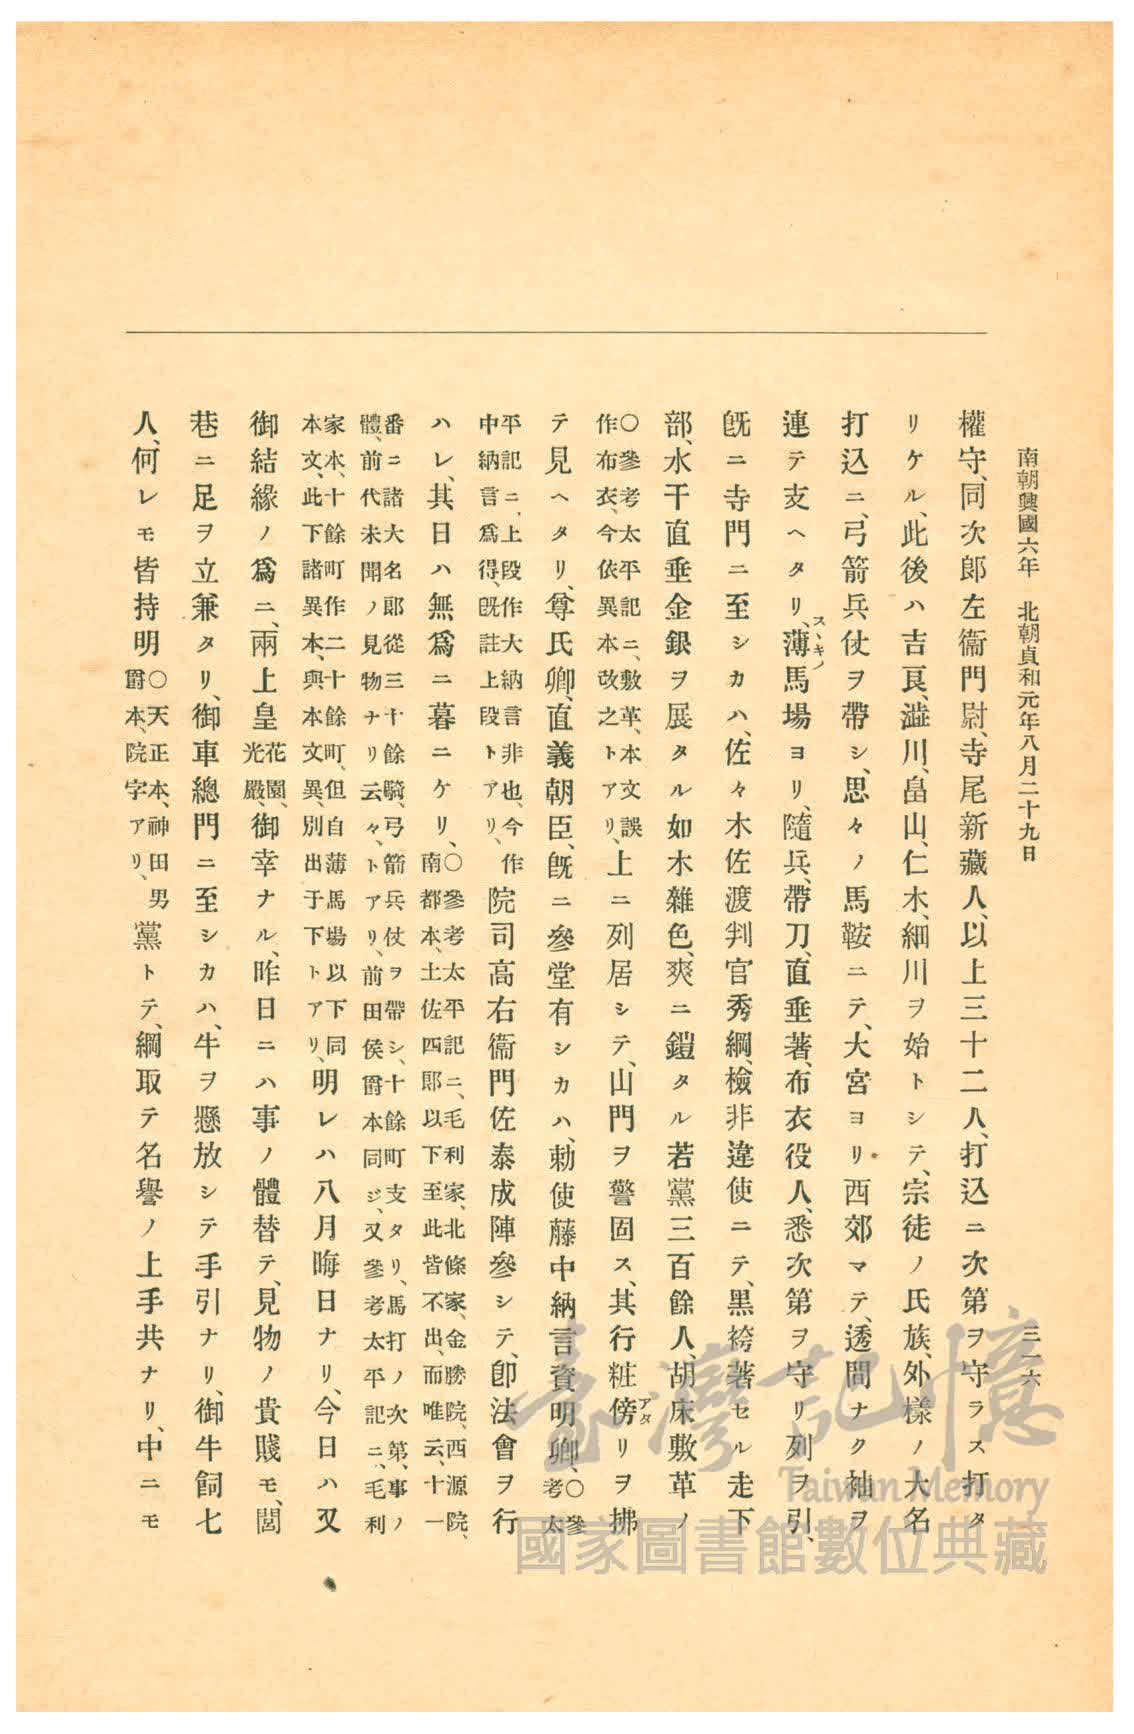 南朝興國六年　北朝貞和元年八月二十九日　三一六
權守、同次郎左衞門尉、寺尾新藏人、以上三十二人、打込ニ次第ヲ守ラス打タ
リケル、此後ハ吉良、澁川、畠山、仁木、細川ヲ始トシテ、宗徒ノ氏族、外樣ノ大名
打込ニ、弓箭兵仗ヲ帶シ、思々ノ馬鞍ニテ、大宮ヨリ西郊マテ、透間ナク袖ヲ
連テ支ヘタリ、薄馬場ヨリ、隨兵、帶刀、直垂著、布衣役人、悉次第ヲ守リ列ヲ引、
スヽキノ
既ニ寺門ニ至シカハ、佐々木佐渡判官秀綱、檢非違使ニテ、黑袴著セル走下
部、水干直垂金銀ヲ展タル如木雜色、爽ニ鎧タル若黨三百餘人、胡床敷革ノ
○參考太平記ニ、敷革、本文誤
作布衣、今依異本改之トアリ、
上ニ列居シテ、山門ヲ警固ス、其行粧傍リヲ拂
アタ
テ見ヘタリ、尊氏卿、直義朝臣、既ニ參堂有シカハ、勅使藤中納言資明卿、
○參
考太
平記ニ、上段作大納言非也、今作
中納言爲得、既註上段トアリ、
院司高右衞門佐泰成陣參シテ、卽法會ヲ行
ハレ、其日ハ無爲ニ暮ニケリ、
○參考太平記ニ、毛利家、北條家、金勝院、西源院、
南都本、土佐四郎以下至此皆不出、而唯云、十一
番ニ諸大名郞從三十餘騎、弓箭兵仗ヲ帶シ、十餘町支タリ、馬打ノ次第、事ノ
體、前代未聞ノ見物ナリ云々、トアリ、前田侯爵本同ジ、又參考太平記ニ、毛利
家本、十餘町作二十餘町、但自薄馬場以下同
本文、此下諸異本、與本文異、別出于下トアリ、
明レハ八月晦日ナリ、今日ハ又
御結緣ノ爲ニ、兩上皇
花園、
光嚴、
御幸ナル、昨日ニハ事ノ體替テ、見物ノ貴賤モ、閭
巷ニ足ヲ立兼タリ、御車總門ニ至シカハ、牛ヲ懸放シテ手引ナリ、御牛飼七
人、何レモ皆持明
○天正本、神田男
爵本、院字アリ、
黨トテ、綱取テ名譽ノ上手共ナリ、中ニモ
臺灣記憶
Taiwan Memory
國家圖書館數位典藏